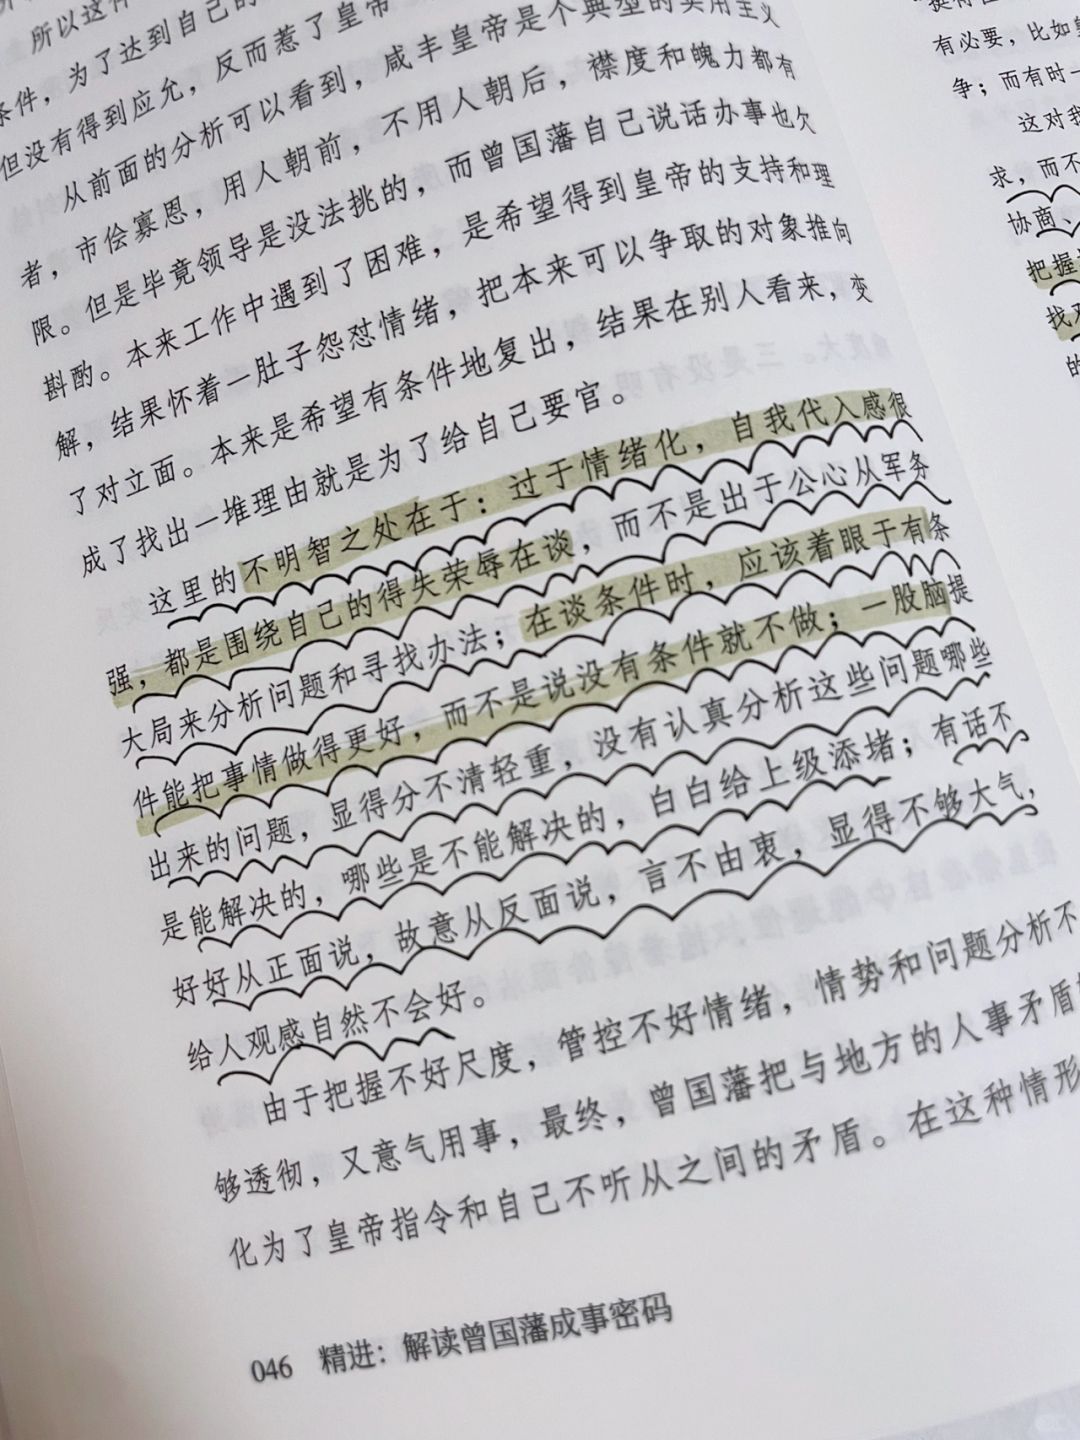 所以这样
条件，为了达到自己的
但没有得到应允，反而惹了皇帝
从前面的分析可以看到，咸丰皇帝是个典型的实用主义
者，市侩寡恩，用人朝前，不用人朝后，襟度和魄力都有
限。但是毕竟领导是没法挑的，而曾国藩自己说话办事也欠
斟酌。本来工作中遇到了困难，是希望得到皇帝的支持和理
解，结果怀着一肚子怨怼情绪，把本来可以争取的对象推向
了对立面。本来是希望有条件地复出，结果在别人看来，变
成了找出一堆理由就是为了给自己要官。
这里的不明智之处在于：过于情绪化，自我代入感很
强，都是围绕自己的得失荣辱在谈，而不是出于公心从军务
大局来分析问题和寻找办法；在谈条件时，应该着眼于有条
件能把事情做得更好，而不是说没有条件就不做；一股脑提
出来的问题，显得分不清轻重，没有认真分析这些问题哪些
是能解决的，哪些是不能解决的，白白给上级添堵；有话不
好好从正面说，故意从反面说，言不由衷，显得不够大气，
给人观感自然不会好。
由于把握不好尺度，管控不好情绪，情势和问题分析不
够透彻，又意气用事，最终，曾国藩把与地方的人事矛盾
化为了皇帝指令和自己不听从之间的矛盾。在这种情形
046 精进：解读曾国藩成事密码
有必要，比如
争；而有时一
这对我
求，而不
协商、
把握
找
的